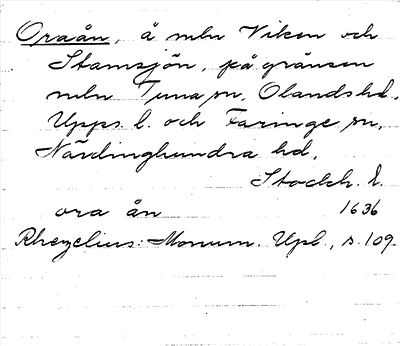 Oraån, å mln Viken och
Stamsjön, på gränsen
mln Tuna sn, Olands hd,
Upps. l. och Faringe sn,
Närdinghundra hd,
Stockh. l.
ora ån 1636
Rhezelius: Monum. Upl., s. 109.